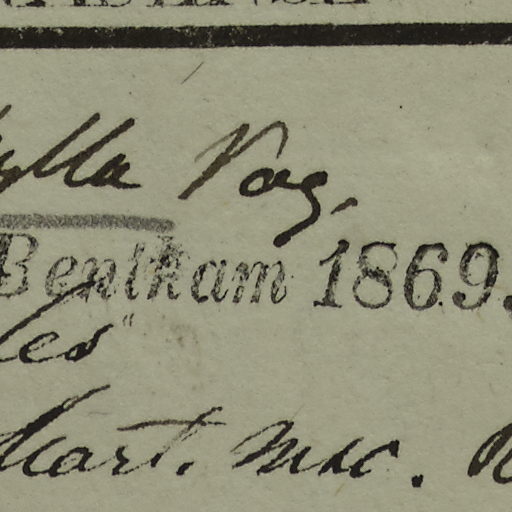 ylla Vog,
Bentham 1869.
les"
Mart. mss.